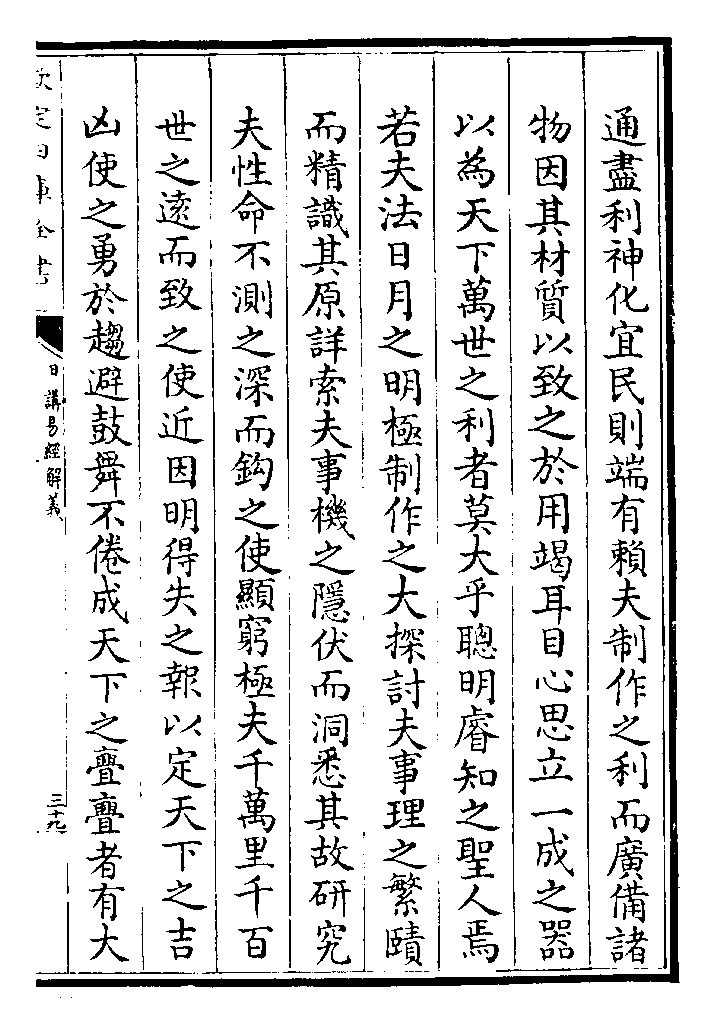 通盡利神化宜民則端有賴夫制作之利而廣備諸
物因其材質以致之於用竭耳目心思立一成之器
以為天下萬世之利者莫大乎聰明睿知之聖人焉
若夫法日月之明極制作之大探討夫事理之繁賾
而精識其原詳索夫事機之隱伏而洞悉其故研究
夫性命不測之深而鈎之使顯窮極夫千萬里千百
世之遠而致之使近因明得失之報以定天下之吉
凶使之勇於趨避鼓舞不倦成天下之亹亹者有大
欽定四庫全書
日講易經解義
三十九